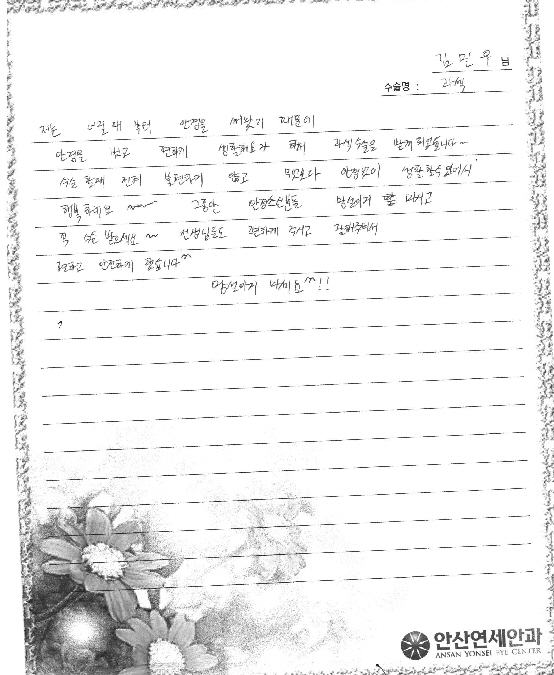 김민우 님
수술명 : 라섹
저는 어릴때 부터 안경을 써왔기 때문에
안경을 벗고 편하게 생활하고자 하여 라섹수술을 받게 되었습니다~
수술 한지 전혀 불편하지 않고 무엇보다 안경없이 생활 할수있어서
행복하네요 ~~ 그동안 안경쓰신분들 망설이지 말 나시고
꼭 수술 받으세요~ 선생님들도 편하게 해주시고 잘해주셔서
편하고 안전하게 했습니다^^
망설이지 마세요^^!!
안산연세안과
ANSAN YONSEI EYE CENTER